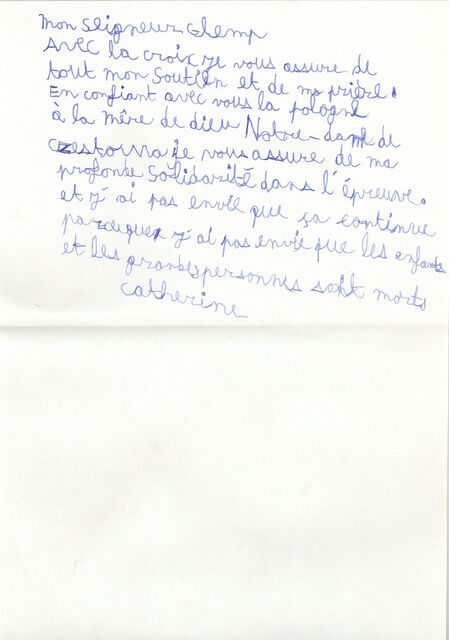 mon seigneur Glemp
Avec la croix je vous assure de
tout mon soutien et de ma prière.
En confiant avec vous la pologne
à la mère de dieu Notre-dame de
czestorna je vous assure de ma
profonde solidarité dans l'épreuve.
et j'ai pas envie que ça continue
parceque j'ai pas envie que les enfants
et les grandes personnes soit morts
catherine